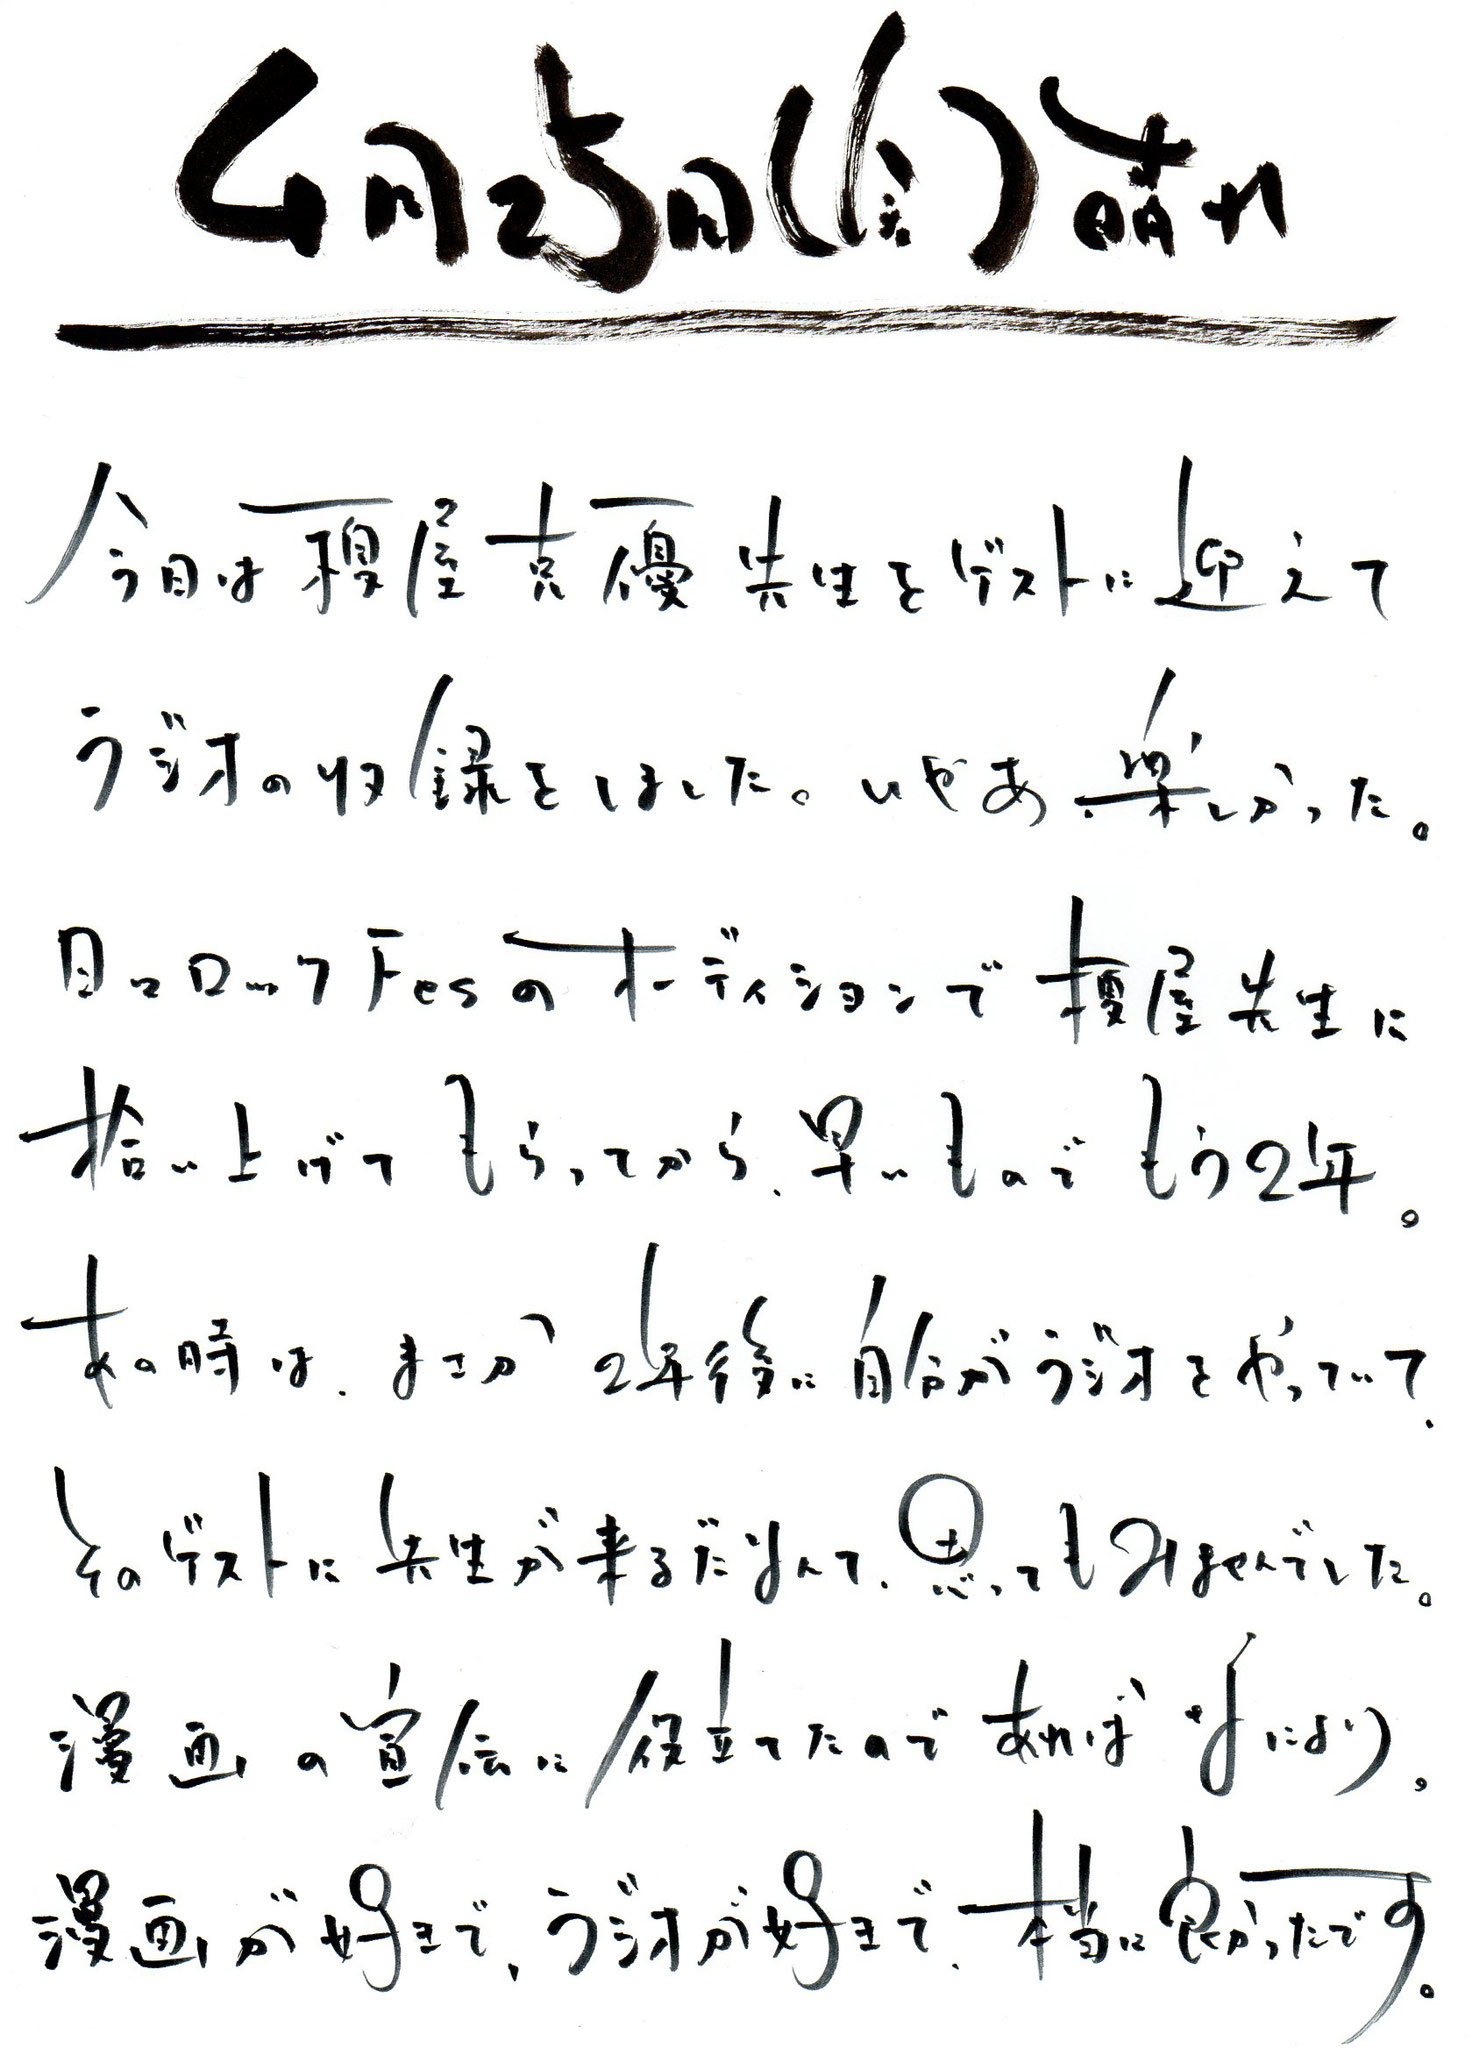 4月25日(金)晴れ
今日は榎屋克優先生をゲストに迎えて
ラジオの収録をしました。いやあ楽しかった。
日々ロックFesのオーディションで榎屋先生に
拾い上げてもらってから、早いものでもう2年。
あの時は、まさか2年後に自分がラジオをやっていて、
そのゲストに先生が来るだなんて、思ってもみませんでした。
漫画の宣伝に役立てたのであればなにより。
漫画が好きで、ラジオが好きで、本当に良かったです。